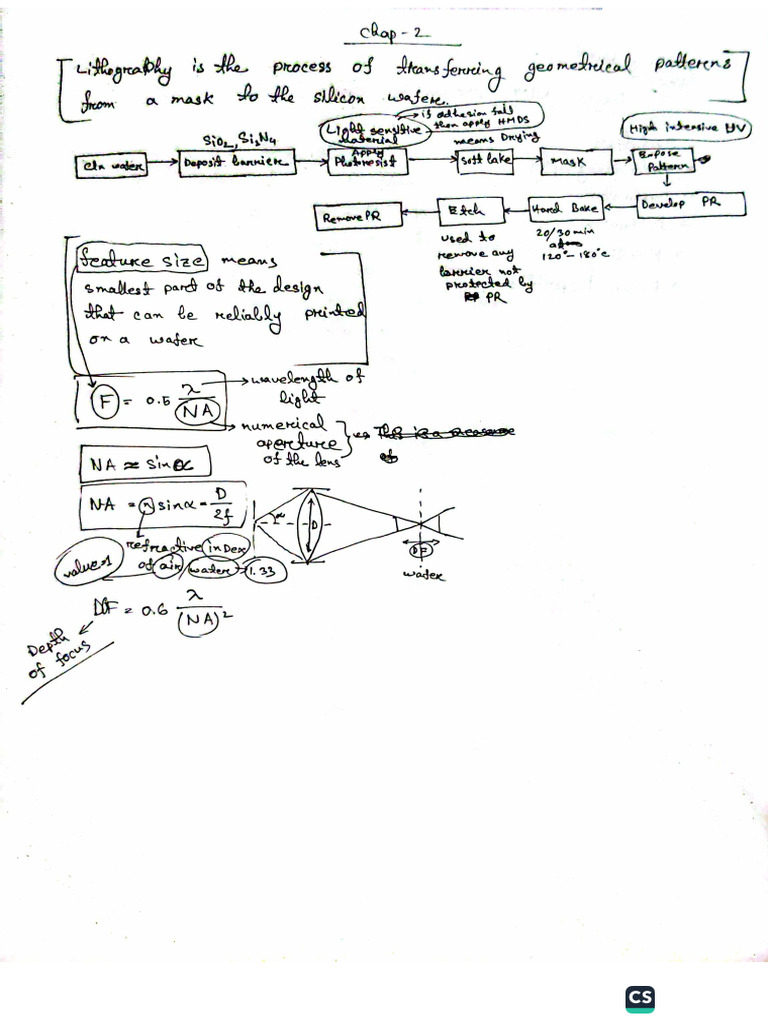 Chap - 2
Lithography is the process of transferring geometrical patterns
from a mask to the silicon wafer.
is adhesion fail
then apply HMDS
Light sensitive
material
High intensive UV
SiO2, Si3N4
means Drying
Cln wafer
Deposit barrier
Apply
Photoresist
Soft bake
mask
Expose
Pattern
Develop PR
Hard Bake
Etch
Remove PR
20/30 min
at
120° - 180°c
used to
remove any
barrier not
protected by
PR
feature size means
smallest part of the design
that can be reliably printed
on a wafer
F = 0.5 λ/NA
wavelength of
light
numerical
aperture
of the lens
This is a measure
of
NA ≈ sinα
NA = n sinα = D/2f
refractive inDex
of air/water → 1.33
value=1
α
D
DF
wafer
DOF = 0.6 λ/(NA)²
Depth
of focus
CS